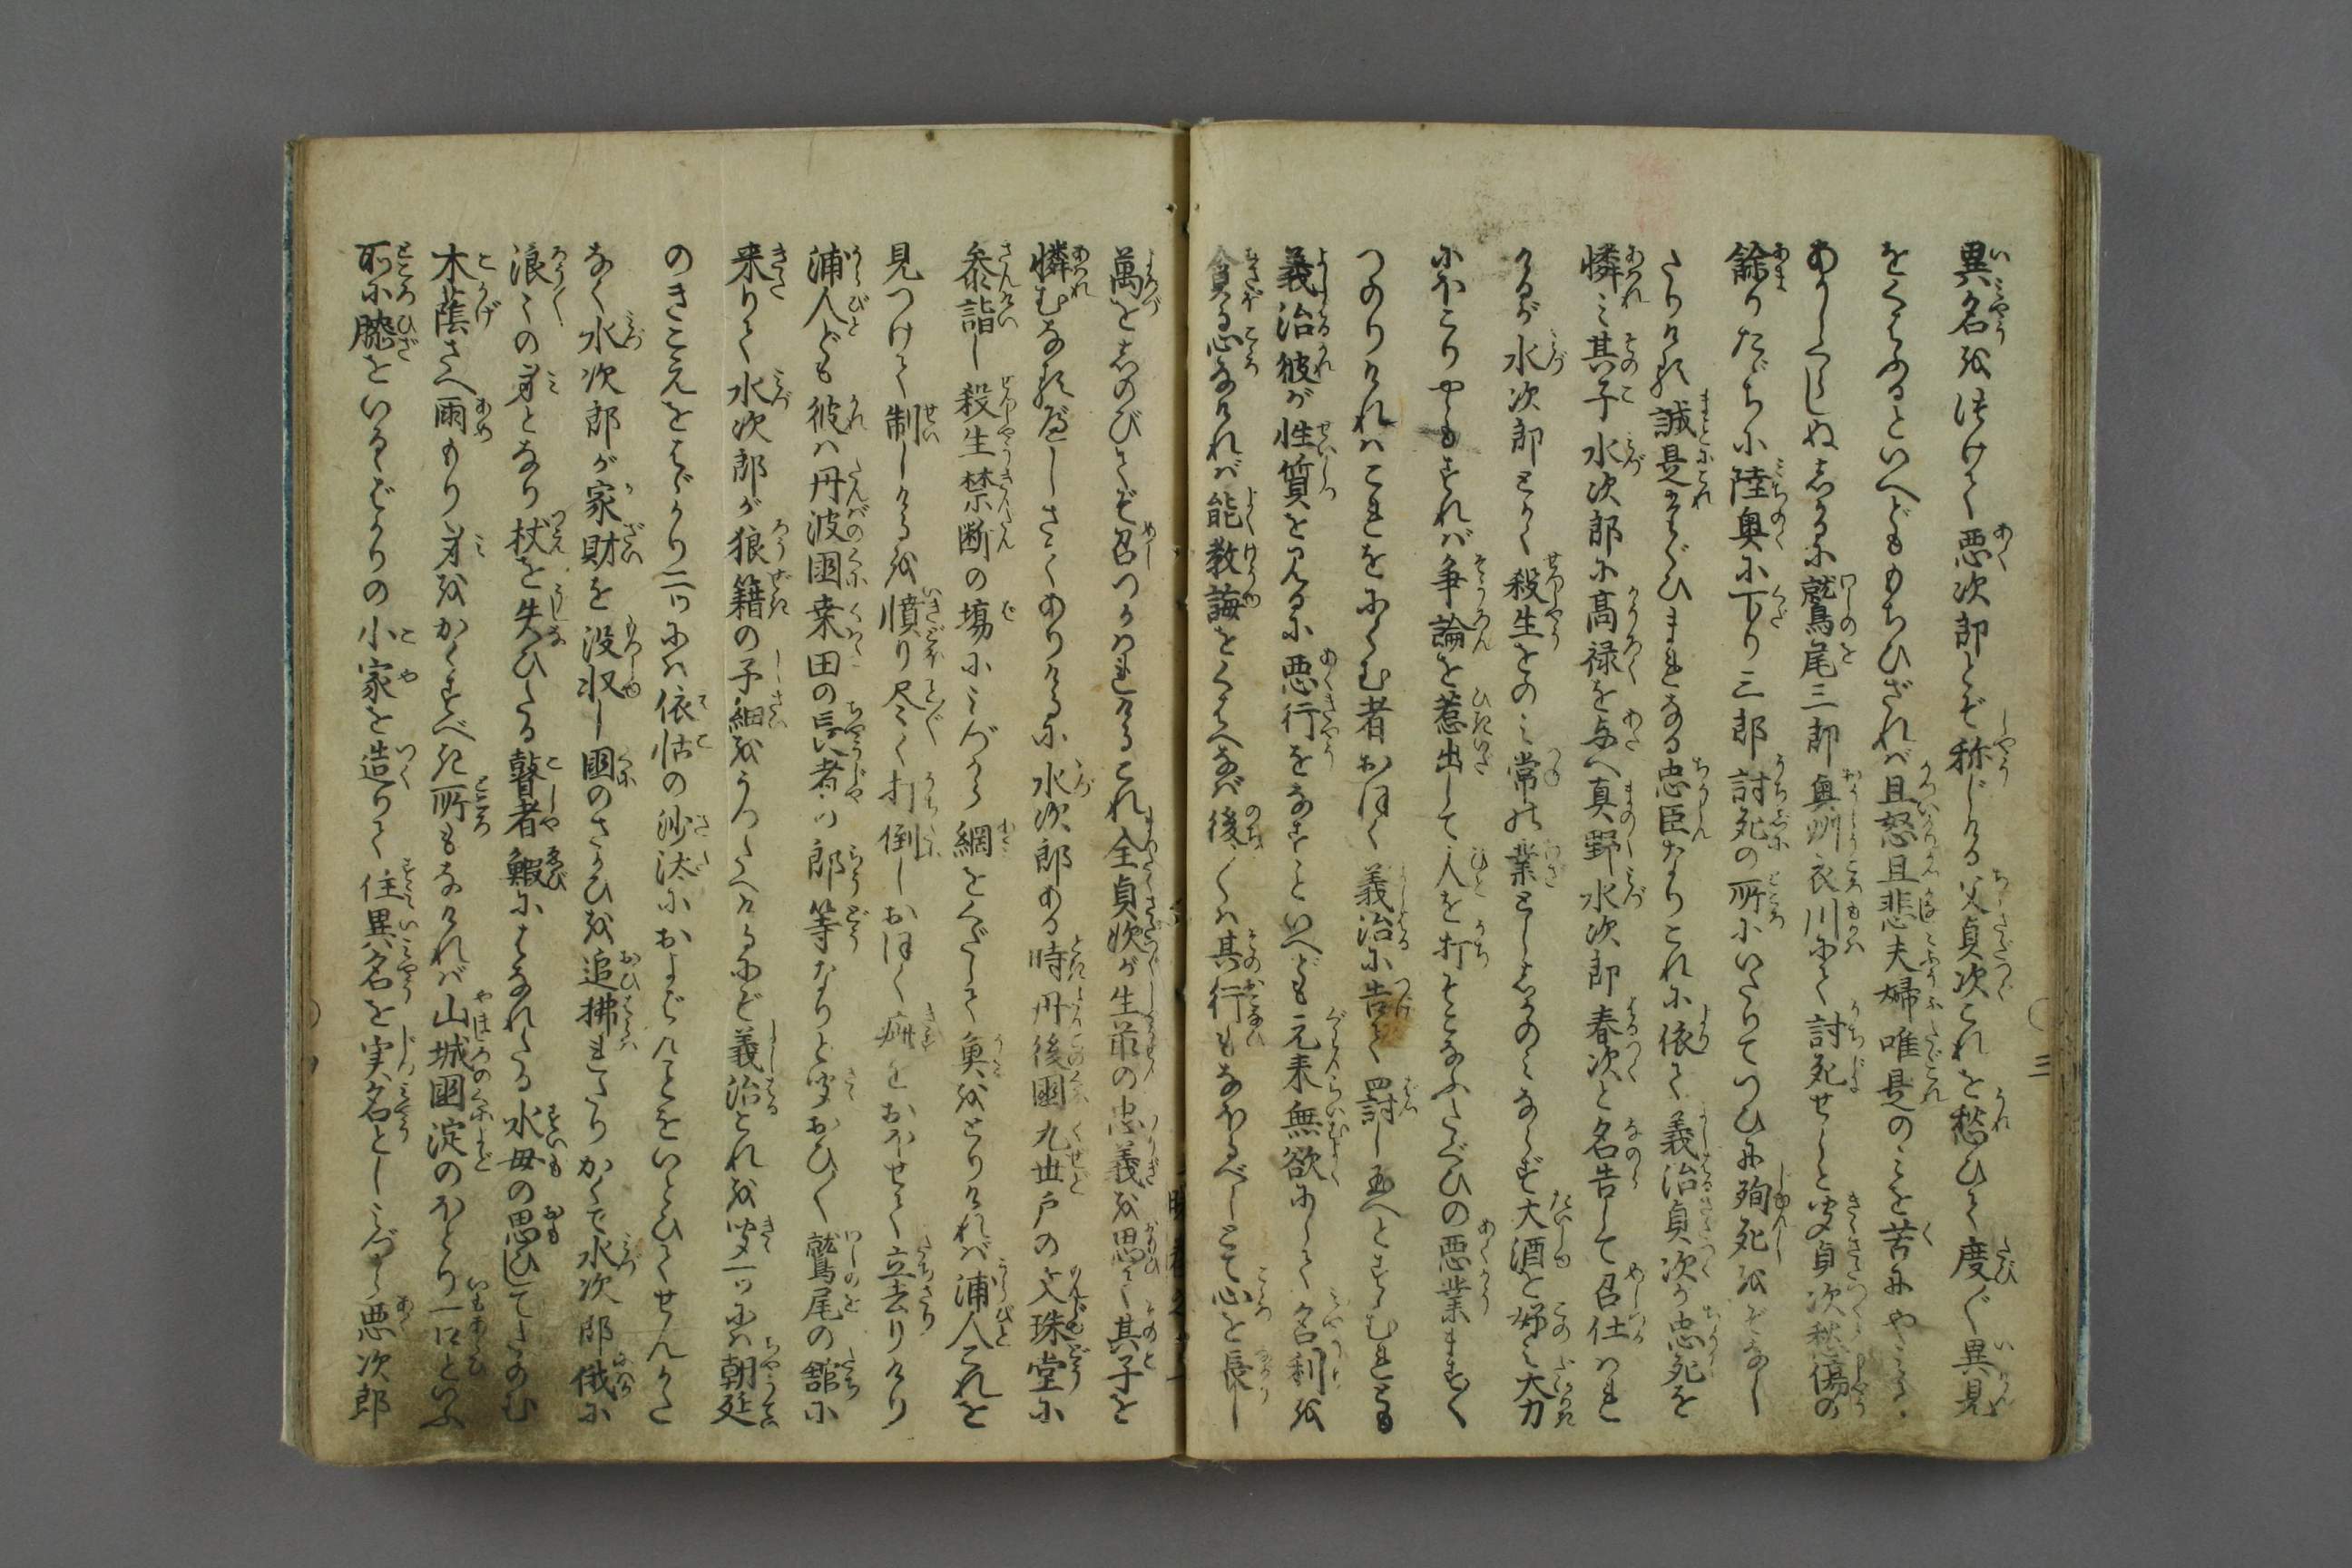 異名を得けて悪次郎とぞ称じける父貞次これを愁ひて度〻異見
をくはふるといへどももちひざれば且怒且悲夫婦唯是のミを苦にやミる
ありしくらしぬしかるに鷲尾三郎奥州衣川にて討死せしと聞貞次愁傷の
餘りたゞちに陸奥に下り三郎討死の所にいたりてつひに殉死をぞなし
たりける誠是たぐひまれなる忠臣なりこれに依て義治貞次が忠死を
憐ミ其子水次郎に高禄を与へ真野水次郎春次と名告して召仕はれ
けるが水次郎とかく殺生をのミ常の業としシかのミならず大酒を好ミ大力
にほこりやゝもすれば争論を惹出して人を打そこなふたぐひの悪業ますく
つのりければこれをにくむ者おほく義治に告て罰し玉へとすゝむれども
義治彼が性質を見るに悪行をなすといへども元来無欲にして名利を
貪る心なければ能教誨をくはへなば後〻は其行もなほるべしとて心を長し
萬をしのびてぞ召つかはれけるこれ全貞次が生前の忠義を思ひて其子を
憐むなるべしさてありけるに水次郎ある時丹後國九世戸の文珠堂に
参詣し殺生禁断の場にミづから網をくだして魚をとりければ浦人これを
見つけて制しけるを憤り尽く打倒しおほく疵をおほせて立去りけり
浦人ども彼は丹波國桒田の長者の郎等なりと聞およひて鷲尾の舘に
来りて水次郎が狼籍の子細をうつたへけるにぞ義治これを聞一ツには朝廷
のきこえをはゞかり二ツには依怙の沙汰におよばんことをいとひてせんかた
なく水次郎が家財を没収し國のさかひを追拂れたりかくて水次郎俄に
浪〻の身となり杖を失ひたる瞽者鰕にはなれたる水母の思ひしてたのむ
木蔭さへ雨もり身をかくすべき所もなければ山城國淀のほとり一口といふ
所に膝をいるゝばかりの小家を造りて住異名を実名としミづから悪次郎